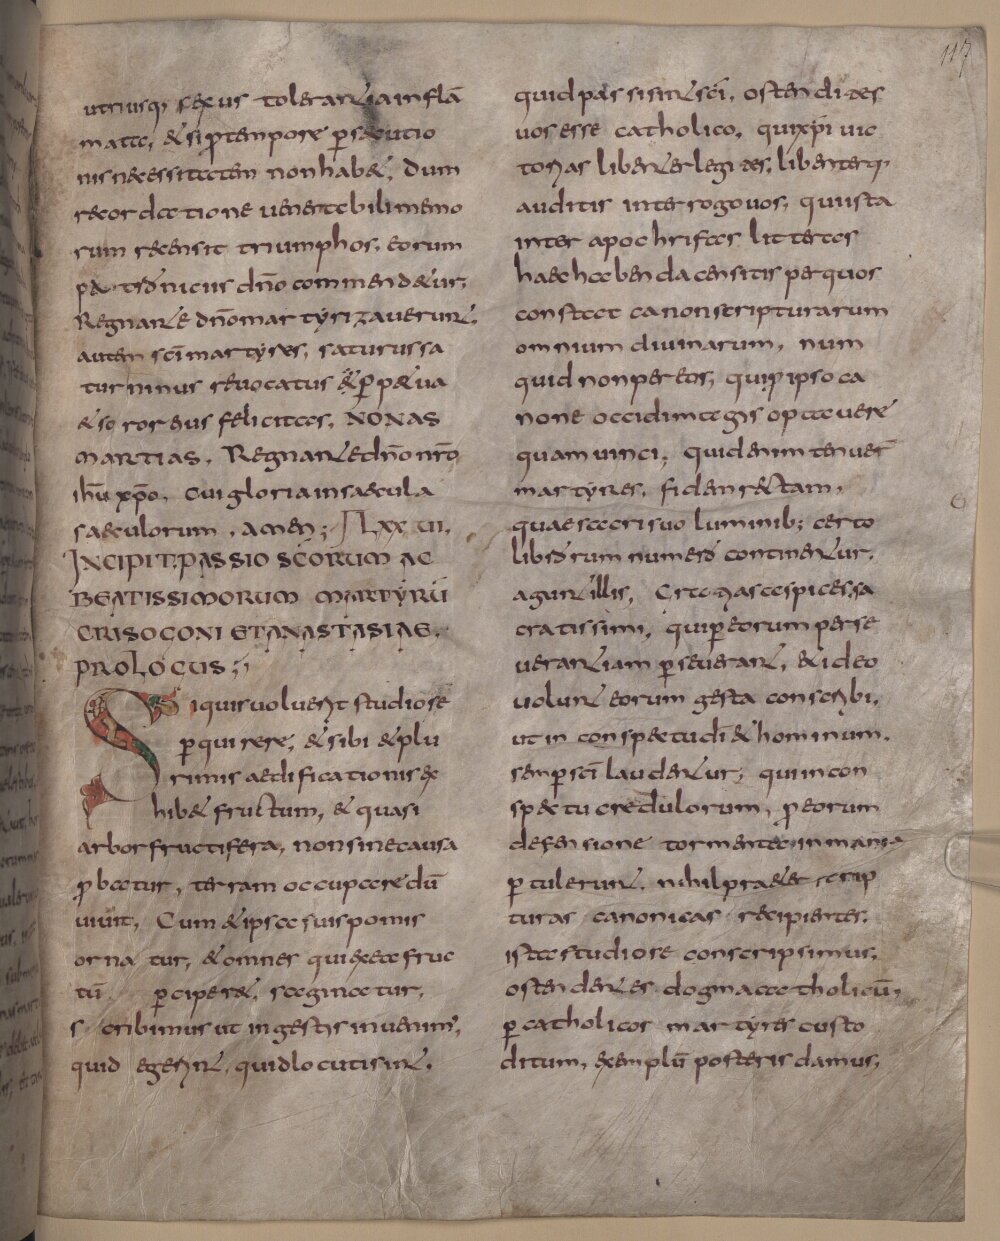 117
utriusq; sexus tolerantia inflā
mata, & si p tempore psecutio
nis necessitatem non hab&, dum
recordatione venerabili memo
rum recensit triumphos, eorum
pat̄ se dñō commendetur;
Regnante dño martyrizaverunt,
autem sc̄i martyres, saturus sa
turninus revocatus & ppetua
& soror eius felicitas, NONAS
MARTIAS, Regnante dño nr̄o
ihū xp̄o, cui gloria in saecula
saeculorum, amen; LXXVII,
INCIPIT PASSIO SCORUM AC
BEATISSIMORUM MARTYRŪ
CRISOGONI ET ANASTASIAE,
PROLOGUS;
Siquis voluerit studiose
pquirere, & sibi & plu
rimis aedificationis ex
hib& fructum, & quasi
arbor fructifera, non sine causa
pbatur, terram occupare dū
vivit, Cum & ipsa suis pomis
ornatur, & omnes qui ex ea fruc
tū pciper&, saginatur,
scribimus ut in gestis invenim;
quid egerint, quid locuti sint,
quid passi sint sc̄i, ostendi aes
vos esse catholico, qui xp̄i vic
torias libenter legi aes, libenterq;
auditis interrogo vos, qui ista
inter apochrifas litteras
haec habenda censitis per quos
constat canon scripturarum
omnium divinarum, num
quid non per eos, qui p ipso ca
none occidi magis optavere
quam vinci, quid enim tenuer̄
martyres, fidem rectam,
quae sacris voluminib; certo
librorum numero continetur,
agunt illis, Gratias cespices, sa
cratissimi, qui p eorum perse
verantiam pseverant, & ideo
volunt eorum gesta conscribi,
ut in conspectu di & hominum,
semp sc̄i laudentur, qui in con
spectu credulorum, p eorum
defensione tormenta inmania
ptulerunt, nihil praeter scrip
turas canonicas recipientes,
ista studiose conscripsimus,
ostendentes dogma catholicū,
p catholicos martyres custo
ditum, exemplū posteris damus,